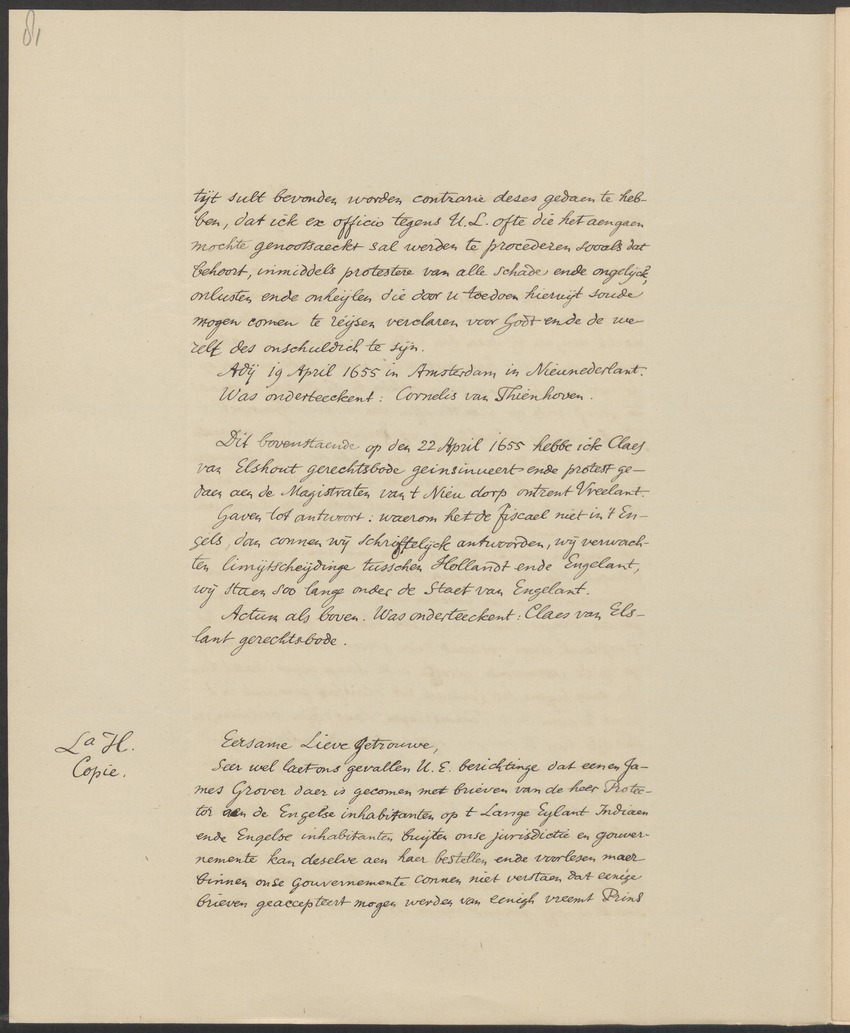 81
tijt sult bevonden worden contrarie deses gedaen te heb-
ben, dat ick ex officio tegens U.L. ofte die het aengaen
mochte genootsaeckt sal werden te procederen sooals dat
behoort, inmiddels protestere van alle schade ende ongelijck,
onlusten ende onheijlen die door u toedoen hieruijt soude
mogen comen te reijsen verclaren voor Godt ende de we-
relt des onschuldich te sijn.
Adij 19 April 1655 in Amsterdam in Nieunederlant.
Was onderteeckent: Cornelis van Thienhoven.
Dit bovenstaende op den 22 April 1655 hebbe ick Claes
van Elshout gerechtsbode geinsinueert ende protest ge-
daen aen de Magistraten van t Nieu dorp ontrent Vreelant.
Gaven tot antwoort: waerom het de fiscael niet in 't En-
gels, dan connen wij schriftelijck antwoorden, wij verwach-
ten limijtscheijdinge tusschen Hollandt ende Engelant,
wij staen soo lange onder de Staet van Engelant.
Actum als boven. Was onderteeckent: Claes van Els-
lant gerechtsbode.
La H.
Copie.
Eersame Lieve Getrouwe,
Seer wel laet ons gevallen U.E. berichtinge dat eenen Ja-
mes Grover daer is gecomen met brieven van de heer Protec-
tor aen de Engelse inhabitanten op t Lange Eylant Indiaen
ende Engelse inhabitanten buijten onse jurisdictie en gouver-
nemente kan deselve aen haer bestellen ende voorlesen maer
binnen onse Gouvernemente connen niet verstaen dat eenige
brieven geaccepteert mogen werden van eenigh vreemt Prins